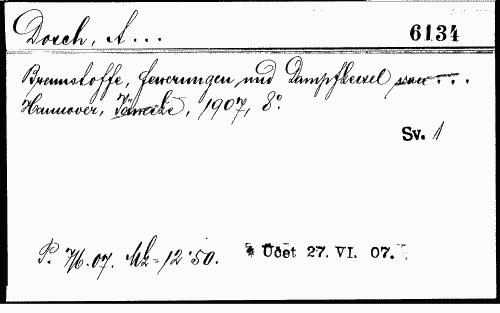 Dorch, A...
6134
Brennstoffe, Feuerungen und Dampfkessel von...
Hannover, Jänecke, 1907, 8°.
Sv. 1
P. 7/6.07. Mk = 12·50.
* Účet 27. VI. 07.